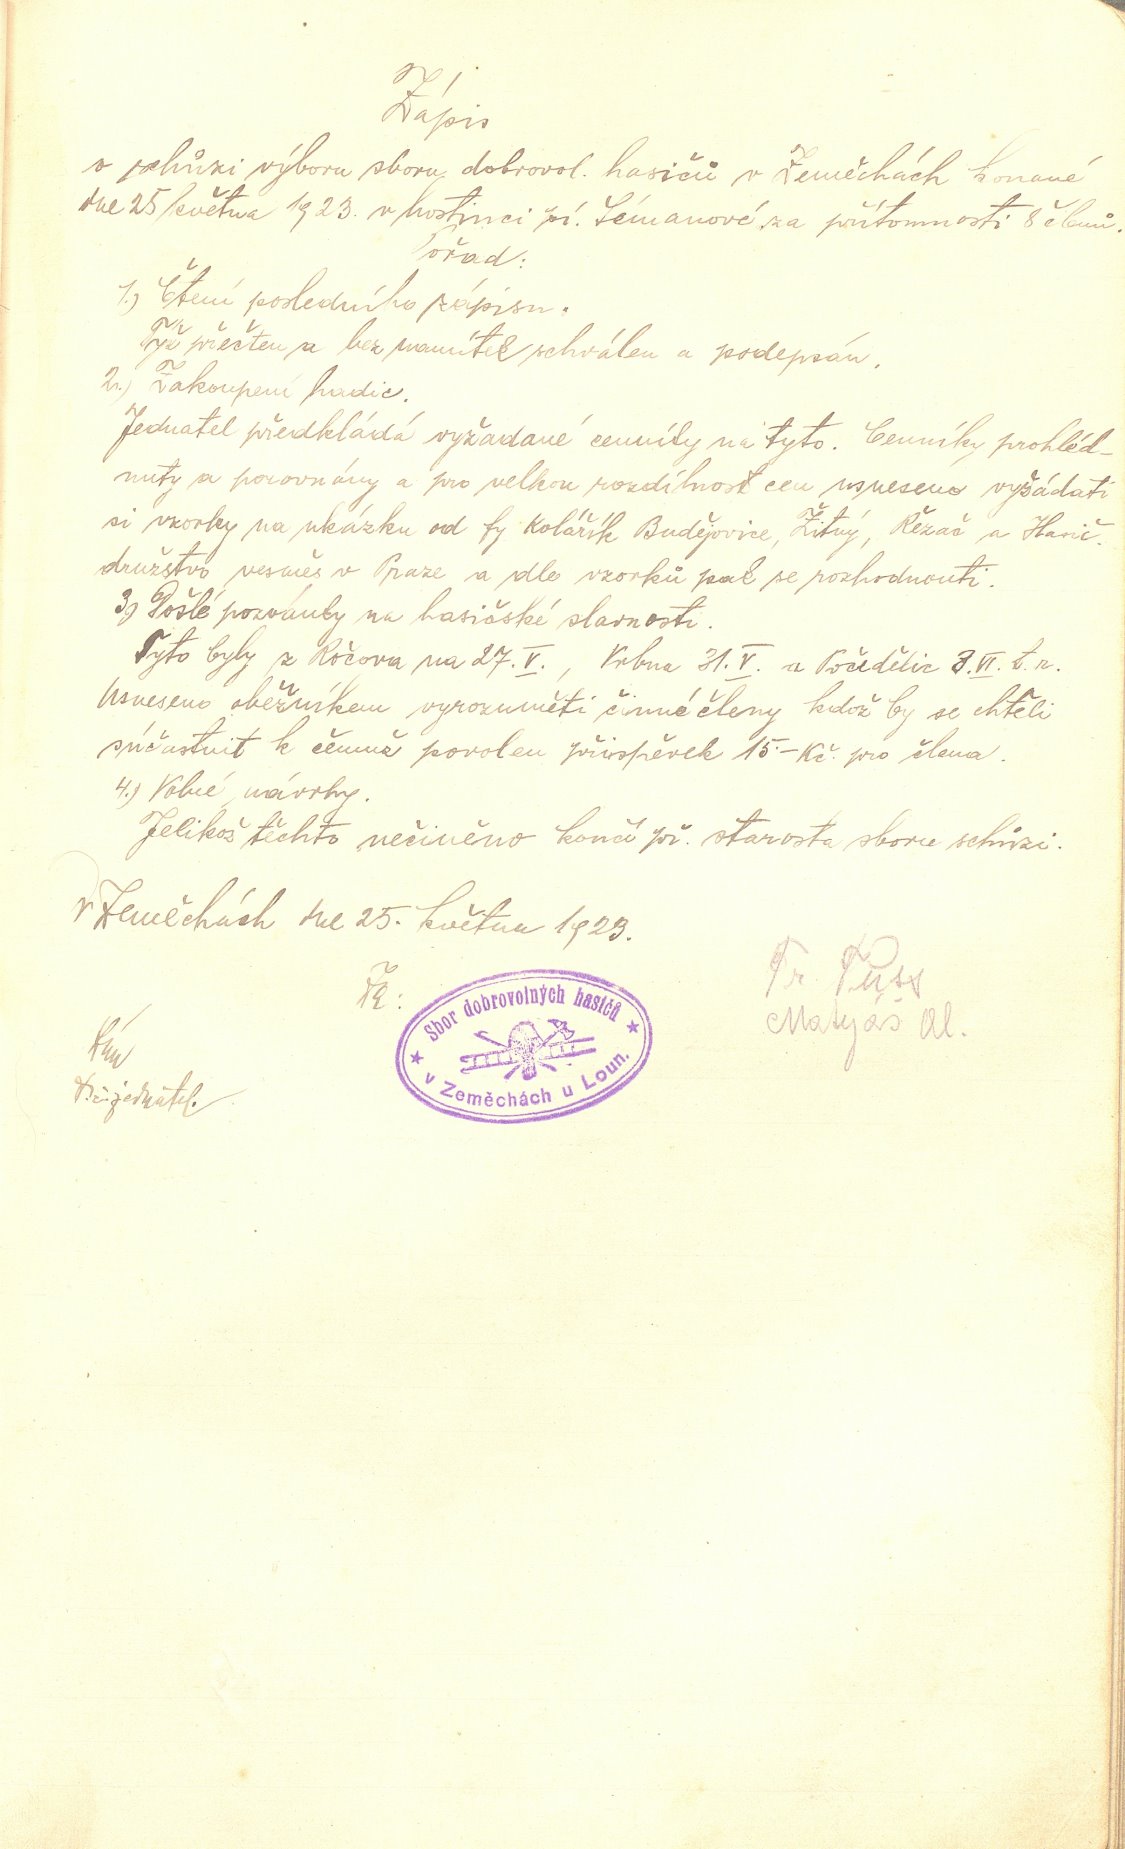 Zápis
o schůzi výboru sboru dobrovol. hasičů v Zeměchách konané
dne 25 května 1923. v hostinci pí. Sémanové za přítomnosti 8 členů.
Pořad:
1.) Čtení posledního zápisu.
Týž přečten a bez namítek schválen a podepsán.
2.) Zakoupení hadic.
Jednatel předkládá vyžadané cenníky na tyto. Cenníky prohléd-
nuty a porovnány a pro velkou rozdílnost cen usneseno vyžádati
si vzorky na ukázku od fy Kolářík Budějovice, Žitný, Řezáč a Hasič.
družstvo vesměs v Praze a dle vzorků pak se rozhodnouti.
3) Došlé pozvánky na hasičské slavnosti.
Tyto byly z Ročova na 27. V., Vrbna 31. V. a Počedělic 3. VI. t. r.
Usneseno oběžníkem vyrozuměti činné členy kdož by se chtěli
súčastnit k čemuž povolen příspěvek 15.- Kč. pro člena.
4.) Volné návrhy.
Jelikož těchto nečiněno končí př. starosta sboru schůzi.
V Zeměchách dne 25. května 1923.
Za:
Sbor dobrovolných hasičů
v Zeměchách u Loun.
Fr. Puss
Matyáš Al.
jednatel.